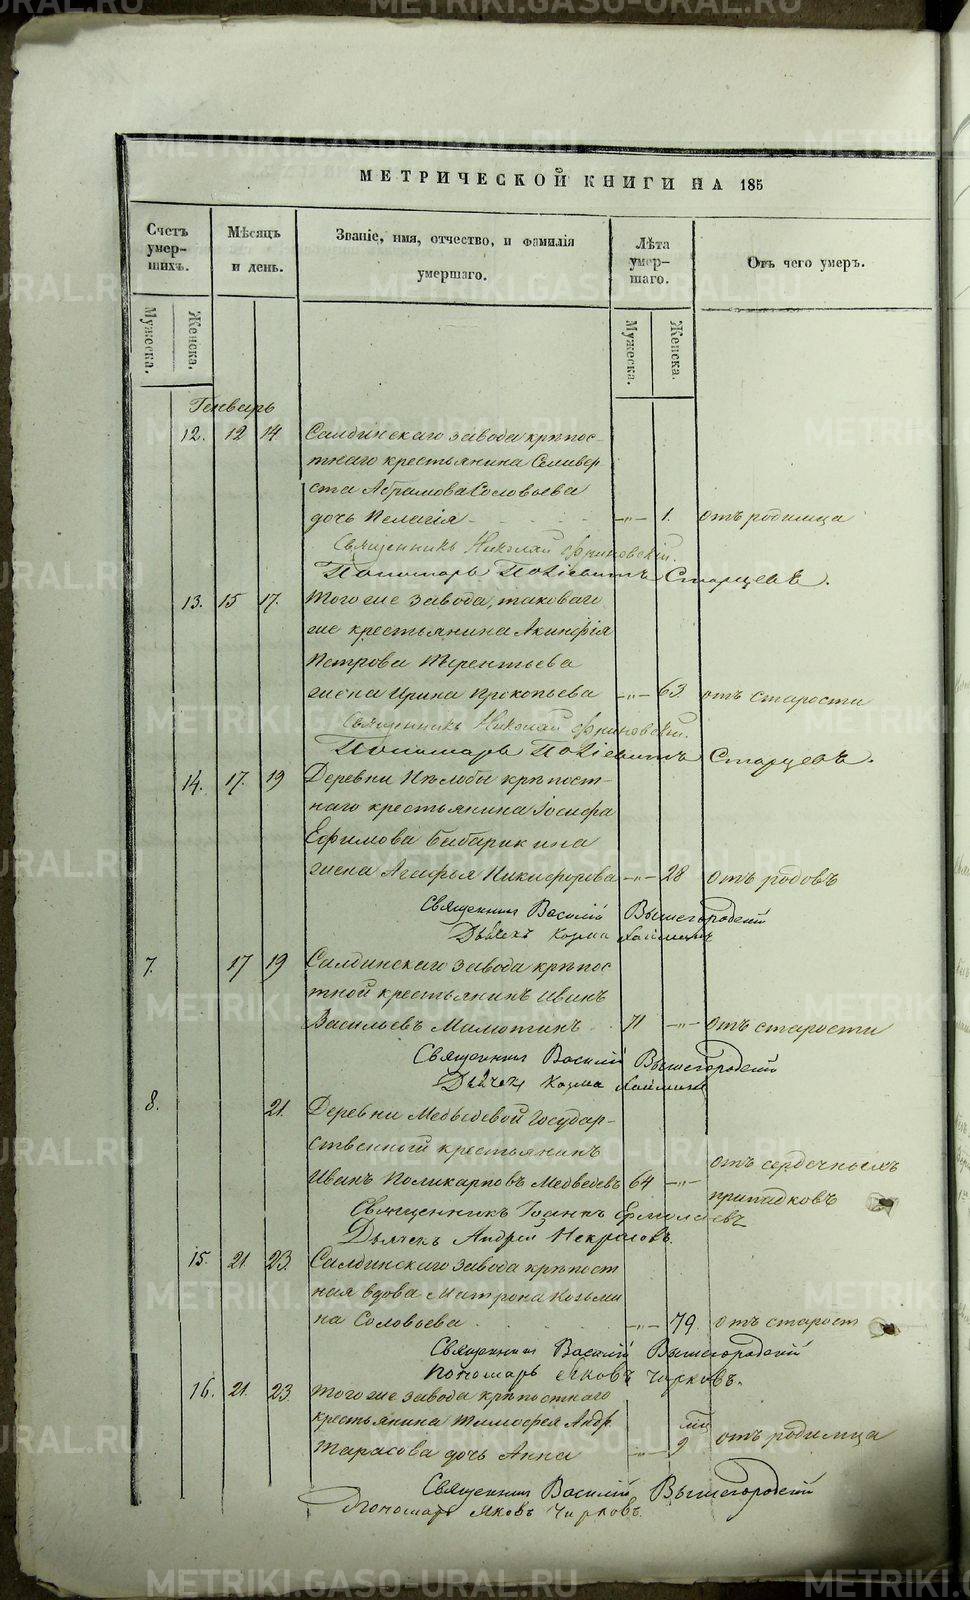 МЕТРИЧЕСКОЙ КНИГИ НА 185
Счетъ умер-шихъ.
Мѣсяцъ и день.
Званіе, имя, отчество, и фамилія умершаго.
Лѣта умер-шаго.
Отъ чего умеръ.
Мужеска.
Женска.
Мужеска.
Женска.
Генварь
12. 12 14 Салдинскаго завода крѣпос-
тнаго крестьянина Селивер
ста Абрамова Соловьева
дочь Пелагія - „ - 1. отъ родимца
Священникъ Николай
Пономарь Старцевъ.
13. 15 17. Того же завода, таковаго
же крестьянина Акинфія
Петрова Терентьева
жена Ирина Прокопьева - „ - 63 отъ старости
Священникъ Николай
Пономарь Старцевъ.
14. 17. 19 Деревни крѣпост-
наго крестьянина Іосифа
Ефимова Бабарикина
жена Агафья Никифорова - „ - 28 отъ родовъ
Священник Василій Вышегородскій
Дьячекъ Козма
7. 17 19 Салдинскаго завода крѣпос
тной крестьянинъ Иванъ
Васильевъ Мамотинъ 71 - „ - отъ старости
Священник Василій Вышегородскій
Дьячекъ Козма
8. 21. Деревни Медвѣдевой Государ-
ственной крестьянинъ
Иванъ Поликарповъ Медвѣдевъ 64 - „ - отъ сердечныхъ
припадковъ
Священникъ Іоаннъ Ермолаевъ
Дьячекъ Андрей Некрасовъ.
15. 21. 23. Салдинскаго завода крѣпост
ная вдова Матрона Козьми
на Соловьева - „ - 79. отъ старост
Священник Василій Вышегородскій
Пономарь Яковъ Чирковъ.
16. 21. 23. Того же завода крѣпостнаго
крестьянина Тимофея Андр.
Тарасова дочь Анна „ 9 отъ родимца
Священник Василій Вышегородскій
Пономарь Яковъ Чирковъ.
METRIKI.GASO-URAL.RU